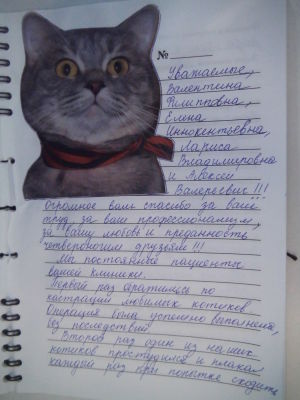 №
Уважаемые,
Валентина
Филипповна,
Елена
Иннокентьевна,
Лариса
Владимировна
и Алексей
Валерьевич!!!
Огромное вам спасибо за ваш
труд, за ваш профессионализм,
за вашу любовь и преданность
четвероногим друзьям!!!
Мы постоянные пациенты
вашей клиники.
Первый раз обратились по
кастрации любимых котиков
Операция была успешно выполнена,
без последствий
Второй раз один из наших
котиков простудился и плакал
каждый раз при попытке сходить